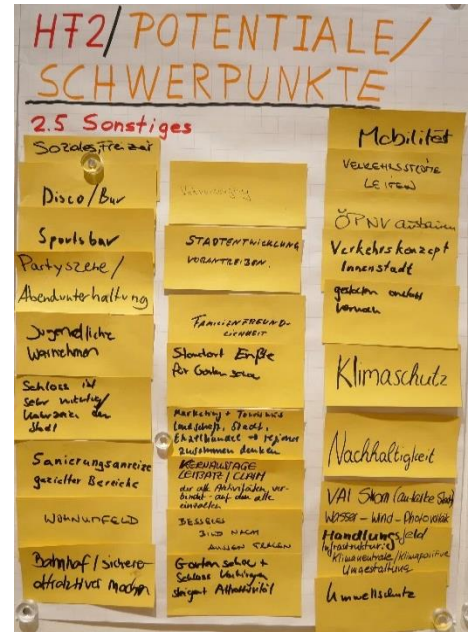 HF2/POTENTIALE/
SCHWERPUNKTE
2.5 Sonstiges
Soziales,
Disco/Bar
Sportsbar
Partyszene/
Abendunterhaltung
Jugendliche
Wahrnehmen
Schloss ist
sehr wichtig/
der
Stadt
Sanierungsanreize
gezielter Bereiche
WOHNUMFELD
Bahnhof/sicherer
attraktiver machen
STADTENTWICKLUNG
VORANTREIBEN.
FAMILIENFREUND-
LICHKEIT
Standort Enßle
für Gartenschau
Marketing + Tourismus
Landschaft, Stadt,
Einzelhandel → regionaler
zusammen denken
KERNAUSSAGE
LEITSATZ/CLAIM
der alle Aktivitäten ver-
bindet - auf den alle
einzahlen
BESSERES
BILD NACH
AUSSEN TRAGEN
Gartenschau +
Schloss Vaihingen
steigert Attraktivität
Mobilität
VERKEHRSSTRÖME
LEITEN
ÖPNV ausbauen
Verkehrskonzept
Innenstadt
gestalten anstatt
Klimaschutz
Nachhaltigkeit
VAI Strom (autarke Stadt)
Wasser-Wind-Photovoltaik
Handlungsfeld
Infrastruktur
Klimaneutrale/klimapositive
Umgestaltung
Umweltschutz